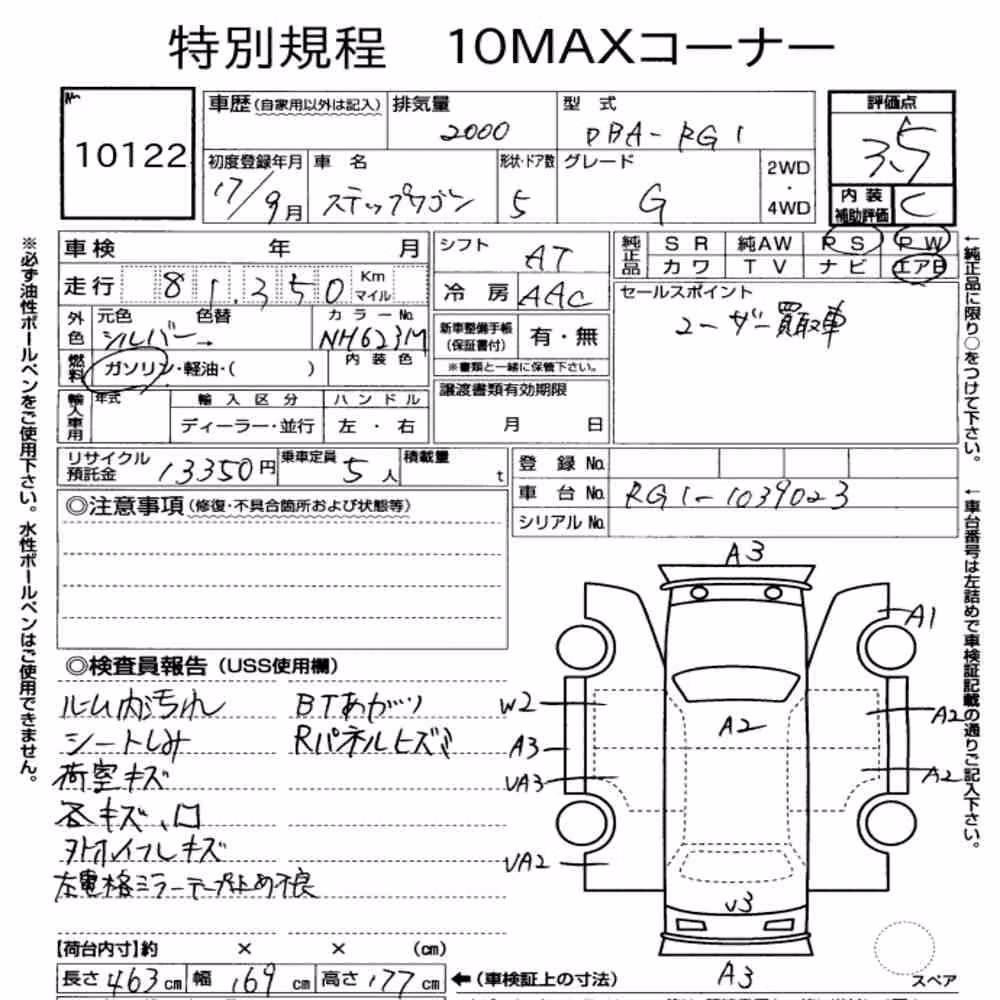 特別規程 10MAXコーナー
10122
車歴(自家用以外は記入) 排気量 型式 評価点
2000 DBA-RG1 3.5
初度登録年月 車名 形状・ドア数 グレード 2WD・4WD 内装補助評価 C
17/9月 ステップワゴン 5 G
車検 年 月 シフト AT 純正品 SR 純AW PS PW
カワ TV ナビ エアB
走行 81,350 Km マイル 冷房 AAC セールスポイント
ユーザー買取車
外色 元色 色替 カラーNo.
シルバー→ NH623M
新車整備手帳(保証書付) 有・無
※書類と一緒に保管下さい。
燃料 ガソリン・軽油・( ) 内装色
輸入車用 年式 輸入区分 ハンドル 譲渡書類有効期限
ディーラー・並行 左・右 月 日
リサイクル預託金 13350円 乗車定員 5人 積載量 t 登録No.
車台No. RG1-1039023
シリアルNo.
◎注意事項(修復・不具合箇所および状態等)
◎検査員報告(USS使用欄)
ルーム内汚れ BTあがり
シートしみ Rパネルヒズミ
荷室キズ
各キズ、凹
アルミホイールキズ
左電格ミラーテープ止め不良
A3
A1
W2
A2
A2
A3
UA3
A2
UA2
U3
A3
スペア
【荷台内寸】約 × × (cm)
長さ463cm 幅169cm 高さ177cm ←(車検証上の寸法)
※必ず油性ボールペンをご使用下さい。水性ボールペンはご使用できません。
←純正品に限り○をつけて下さい。
←車台番号は左詰めで車検証記載の通りご記入下さい。